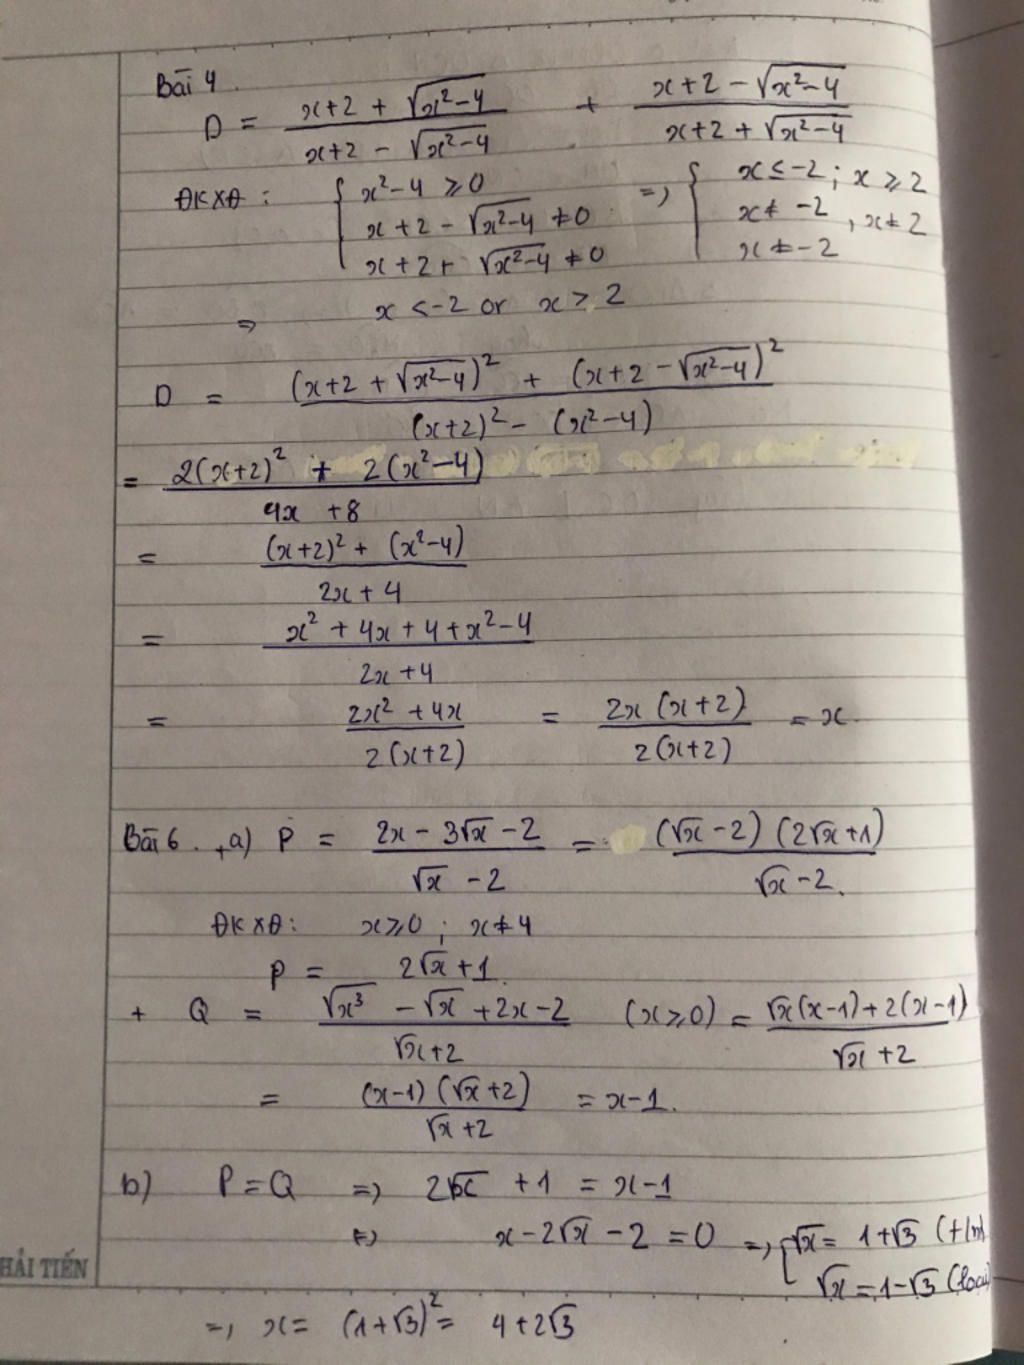 Bài 4.
D = (x+2 + √(x²-4))/(x+2 - √(x²-4)) + (x+2 - √(x²-4))/(x+2 + √(x²-4))
ĐKXĐ : { x²-4 ≥ 0 => { x ≤ -2 ; x ≥ 2
x+2 - √(x²-4) ≠ 0 x ≠ -2 , x ≠ 2
x+2 + √(x²-4) ≠ 0 x ≠ -2
=> x < -2 or x > 2
D = ((x+2 + √(x²-4))² + (x+2 - √(x²-4))²)/((x+2)² - (x²-4))
= (2(x+2)² + 2(x²-4))/(4x +8)
= ((x+2)² + (x²-4))/(2x+4)
= (x² + 4x + 4 + x² - 4)/(2x+4)
= (2x² + 4x)/(2(x+2)) = (2x(x+2))/(2(x+2)) = x.
Bài 6. +, a) P = (2x - 3√x - 2)/(√x - 2) = ((√x - 2)(2√x + 1))/(√x - 2).
ĐKXĐ: x ≥ 0 ; x ≠ 4
P = 2√x + 1.
+ Q = (√x³ - √x + 2x - 2)/(√x + 2) (x ≥ 0) = (√x(x-1) + 2(x-1))/(√x + 2)
= ((x-1)(√x + 2))/(√x + 2) = x-1.
b) P = Q => 2√x + 1 = x-1
<=> x - 2√x - 2 = 0 => [ √x = 1+√3 (t/m)
√x = 1-√3 (loại)
HẢI TIẾN
=> x = (1+√3)² = 4+2√3